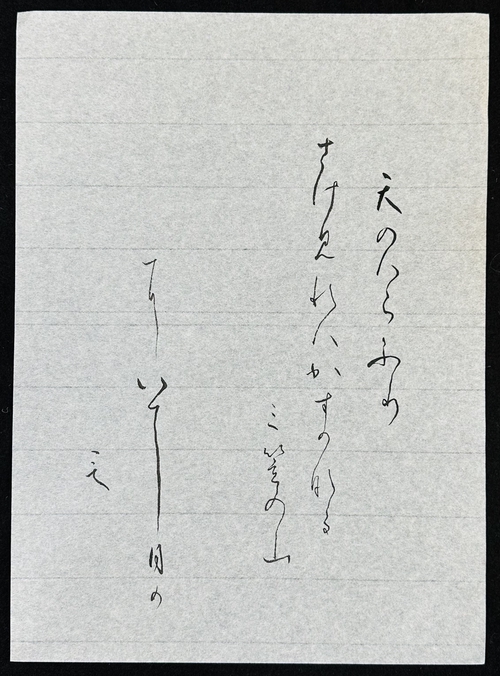 天のはらふり
さけ見れはかすかなる
三笠の山
にいてし月か
も